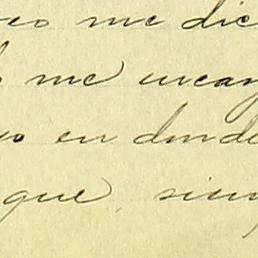 me dic
me encan
en donde
que, siem